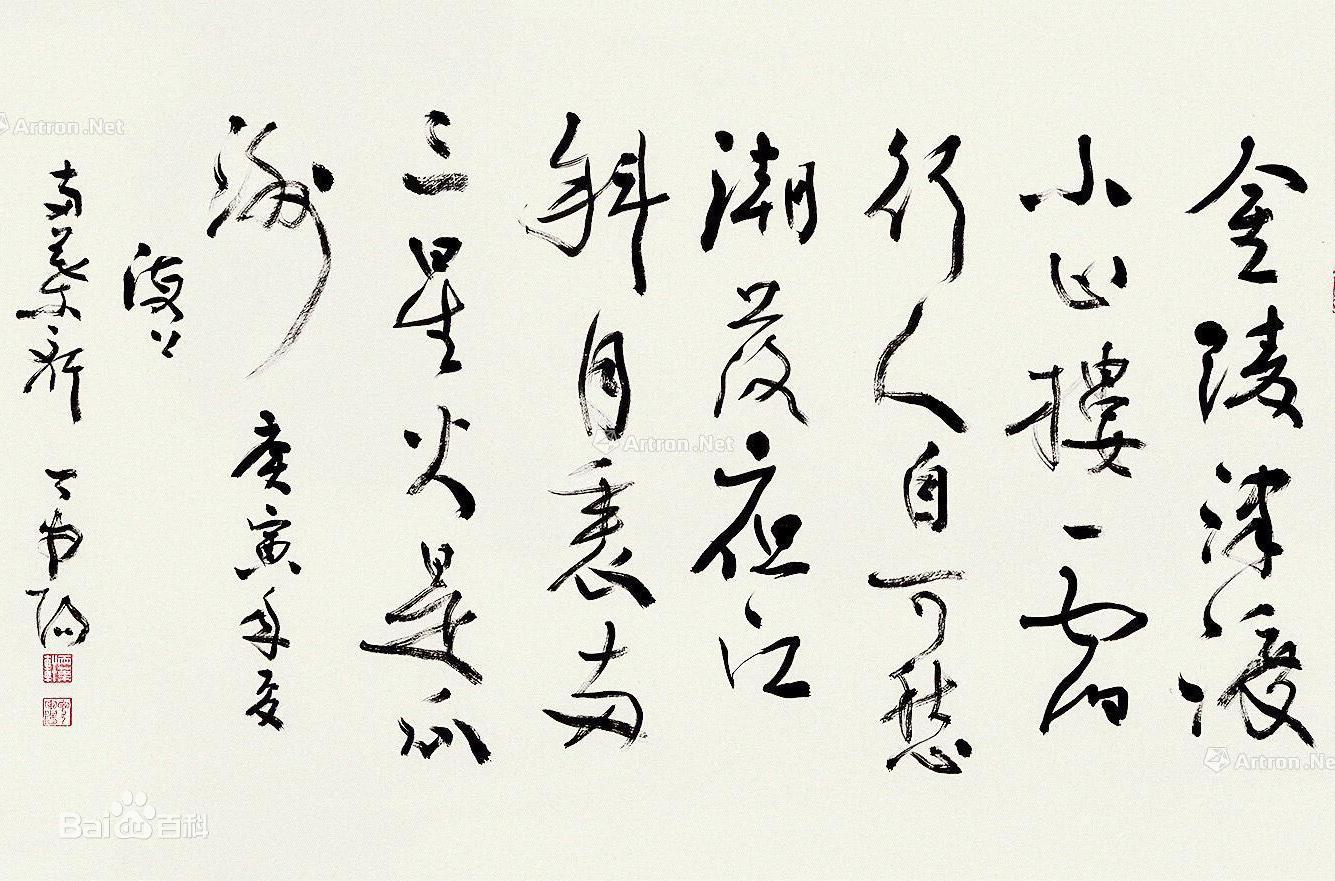 金陵津渡
小山樓一宿
行人自可愁
潮落夜江
斜月裏兩
三星火是瓜
洲 庚寅年夏
海上
Artron.Net
Artron.Net
Artron.Net
Bai 百科